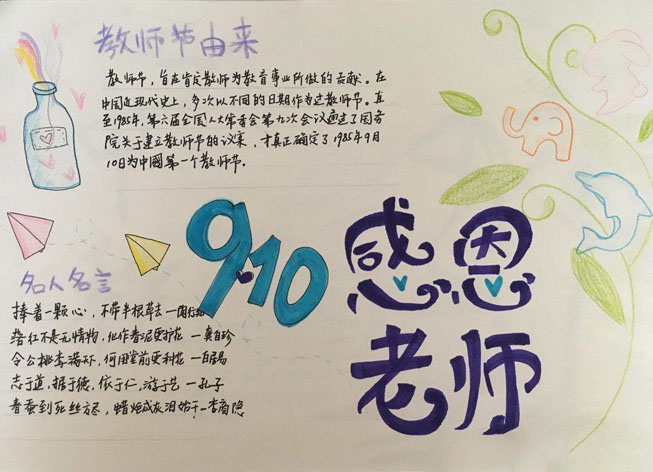 教师节由来
教师节，旨在肯定教师为教育事业所做的贡献。在
中国近现代史上，多次以不同的日期作为过教师节。直
至1985年，第六届全国人大常委会第九次会议通过了国务
院关于建立教师节的议案，才真正确定了1985年9月
10日为中國第一个教师节。
9.10
感恩
老师
名人名言
捧着一颗心，不带半根草去 一陶行知
落红不是无情物，化作春泥更护花 一龚自珍
令公桃李满，何用堂前更种花 一白居易
志于道，据于德，依于仁，游于艺 一孔子
春蚕到死丝方尽，蜡炬成灰泪始干一李商隐